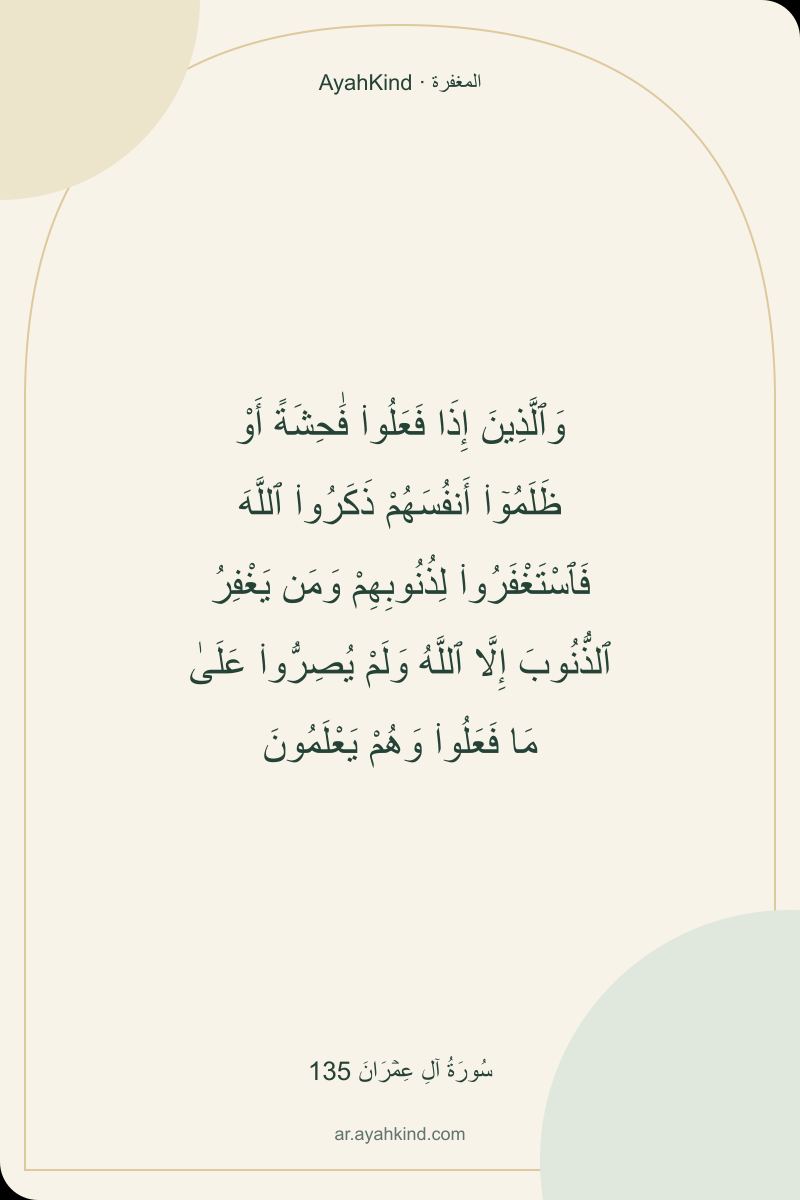 AyahKind · المغفرة
وَٱلَّذِينَ إِذَا فَعَلُوا۟ فَـٰحِشَةً أَوْ
ظَلَمُوٓا۟ أَنفُسَهُمْ ذَكَرُوا۟ ٱللَّهَ
فَٱسْتَغْفَرُوا۟ لِذُنُوبِهِمْ وَمَن يَغْفِرُ
ٱلذُّنُوبَ إِلَّا ٱللَّهُ وَلَمْ يُصِرُّوا۟ عَلَىٰ
مَا فَعَلُوا۟ وَهُمْ يَعْلَمُونَ
سُورَةُ آلِ عِمۡرَانَ 135
ar.ayahkind.com